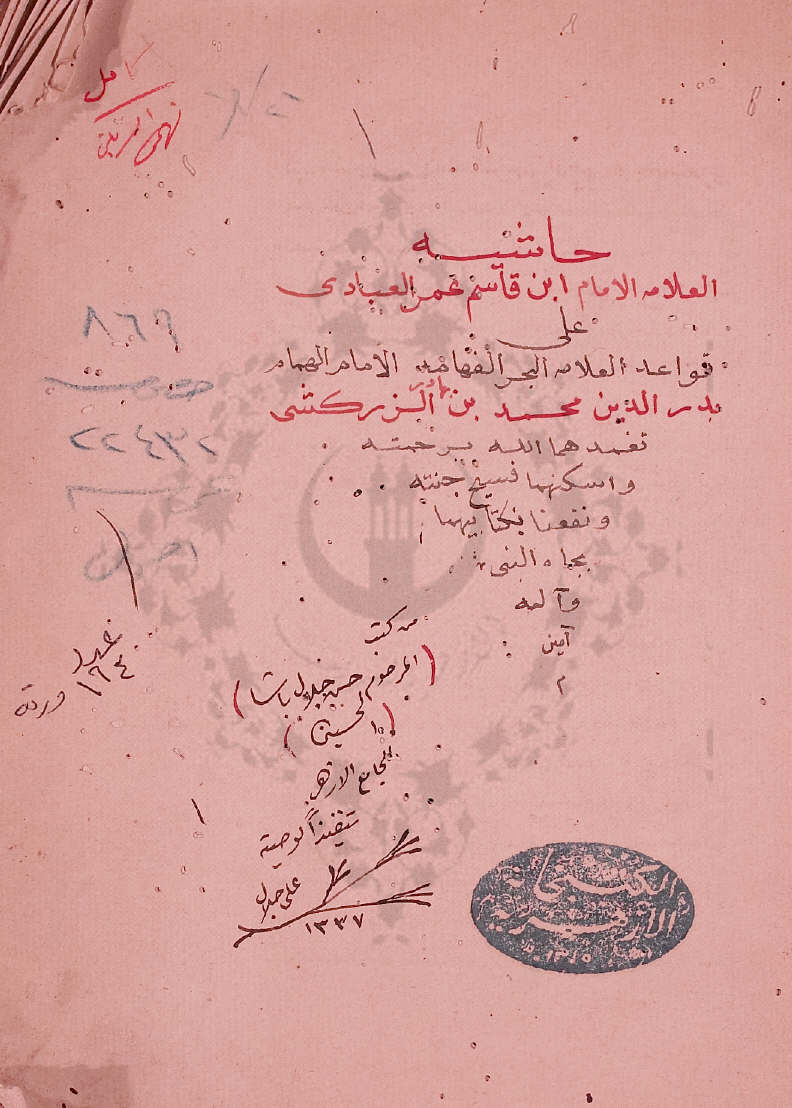 كامل
حاشيه
العلامه الامام ابن قاسم عمر العبادى
على
قواعد العلامه البحر الفهامه الامام الهمام
بدر الدين محمد بن بهادر الزركشى
تغمدهما الله برحمته
واسكنهما فسيح جنته
ونفعنا بكتابيهما
بجاه النبى
وآله
آمين
م
٨٦٩
٢٢٤٣٢
١٦٤ ورقة
من كتب
(المرحوم حسن جلال باشا)
(الحسينى)
للجامع الازهر
تنفيذاً لوصيته
على جلال
١٣٣٧
الكتبخانة
الازهرية